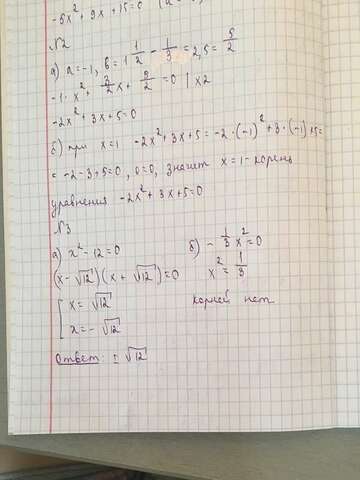 -6x² + 9x + 15 = 0
№2
а) a = -1, b = 1 1/2 - 1/3 = 2,5 = 5/2
-1·x² + 3/2 x + 5/2 = 0 | ×2
-2x² + 3x + 5 = 0
б) при x = 1 -2x² + 3x + 5 = -2·(-1)² + 3·(-1) + 5 =
= -2 - 3 + 5 = 0, 0 = 0, значит x = 1 - корень
уравнения -2x² + 3x + 5 = 0
№3
а) x² - 12 = 0
(x - √12)(x + √12) = 0
x = √12
x = - √12
Ответ: ± √12
б) - 1/3 x² = 0
x² = 1/3
корней нет